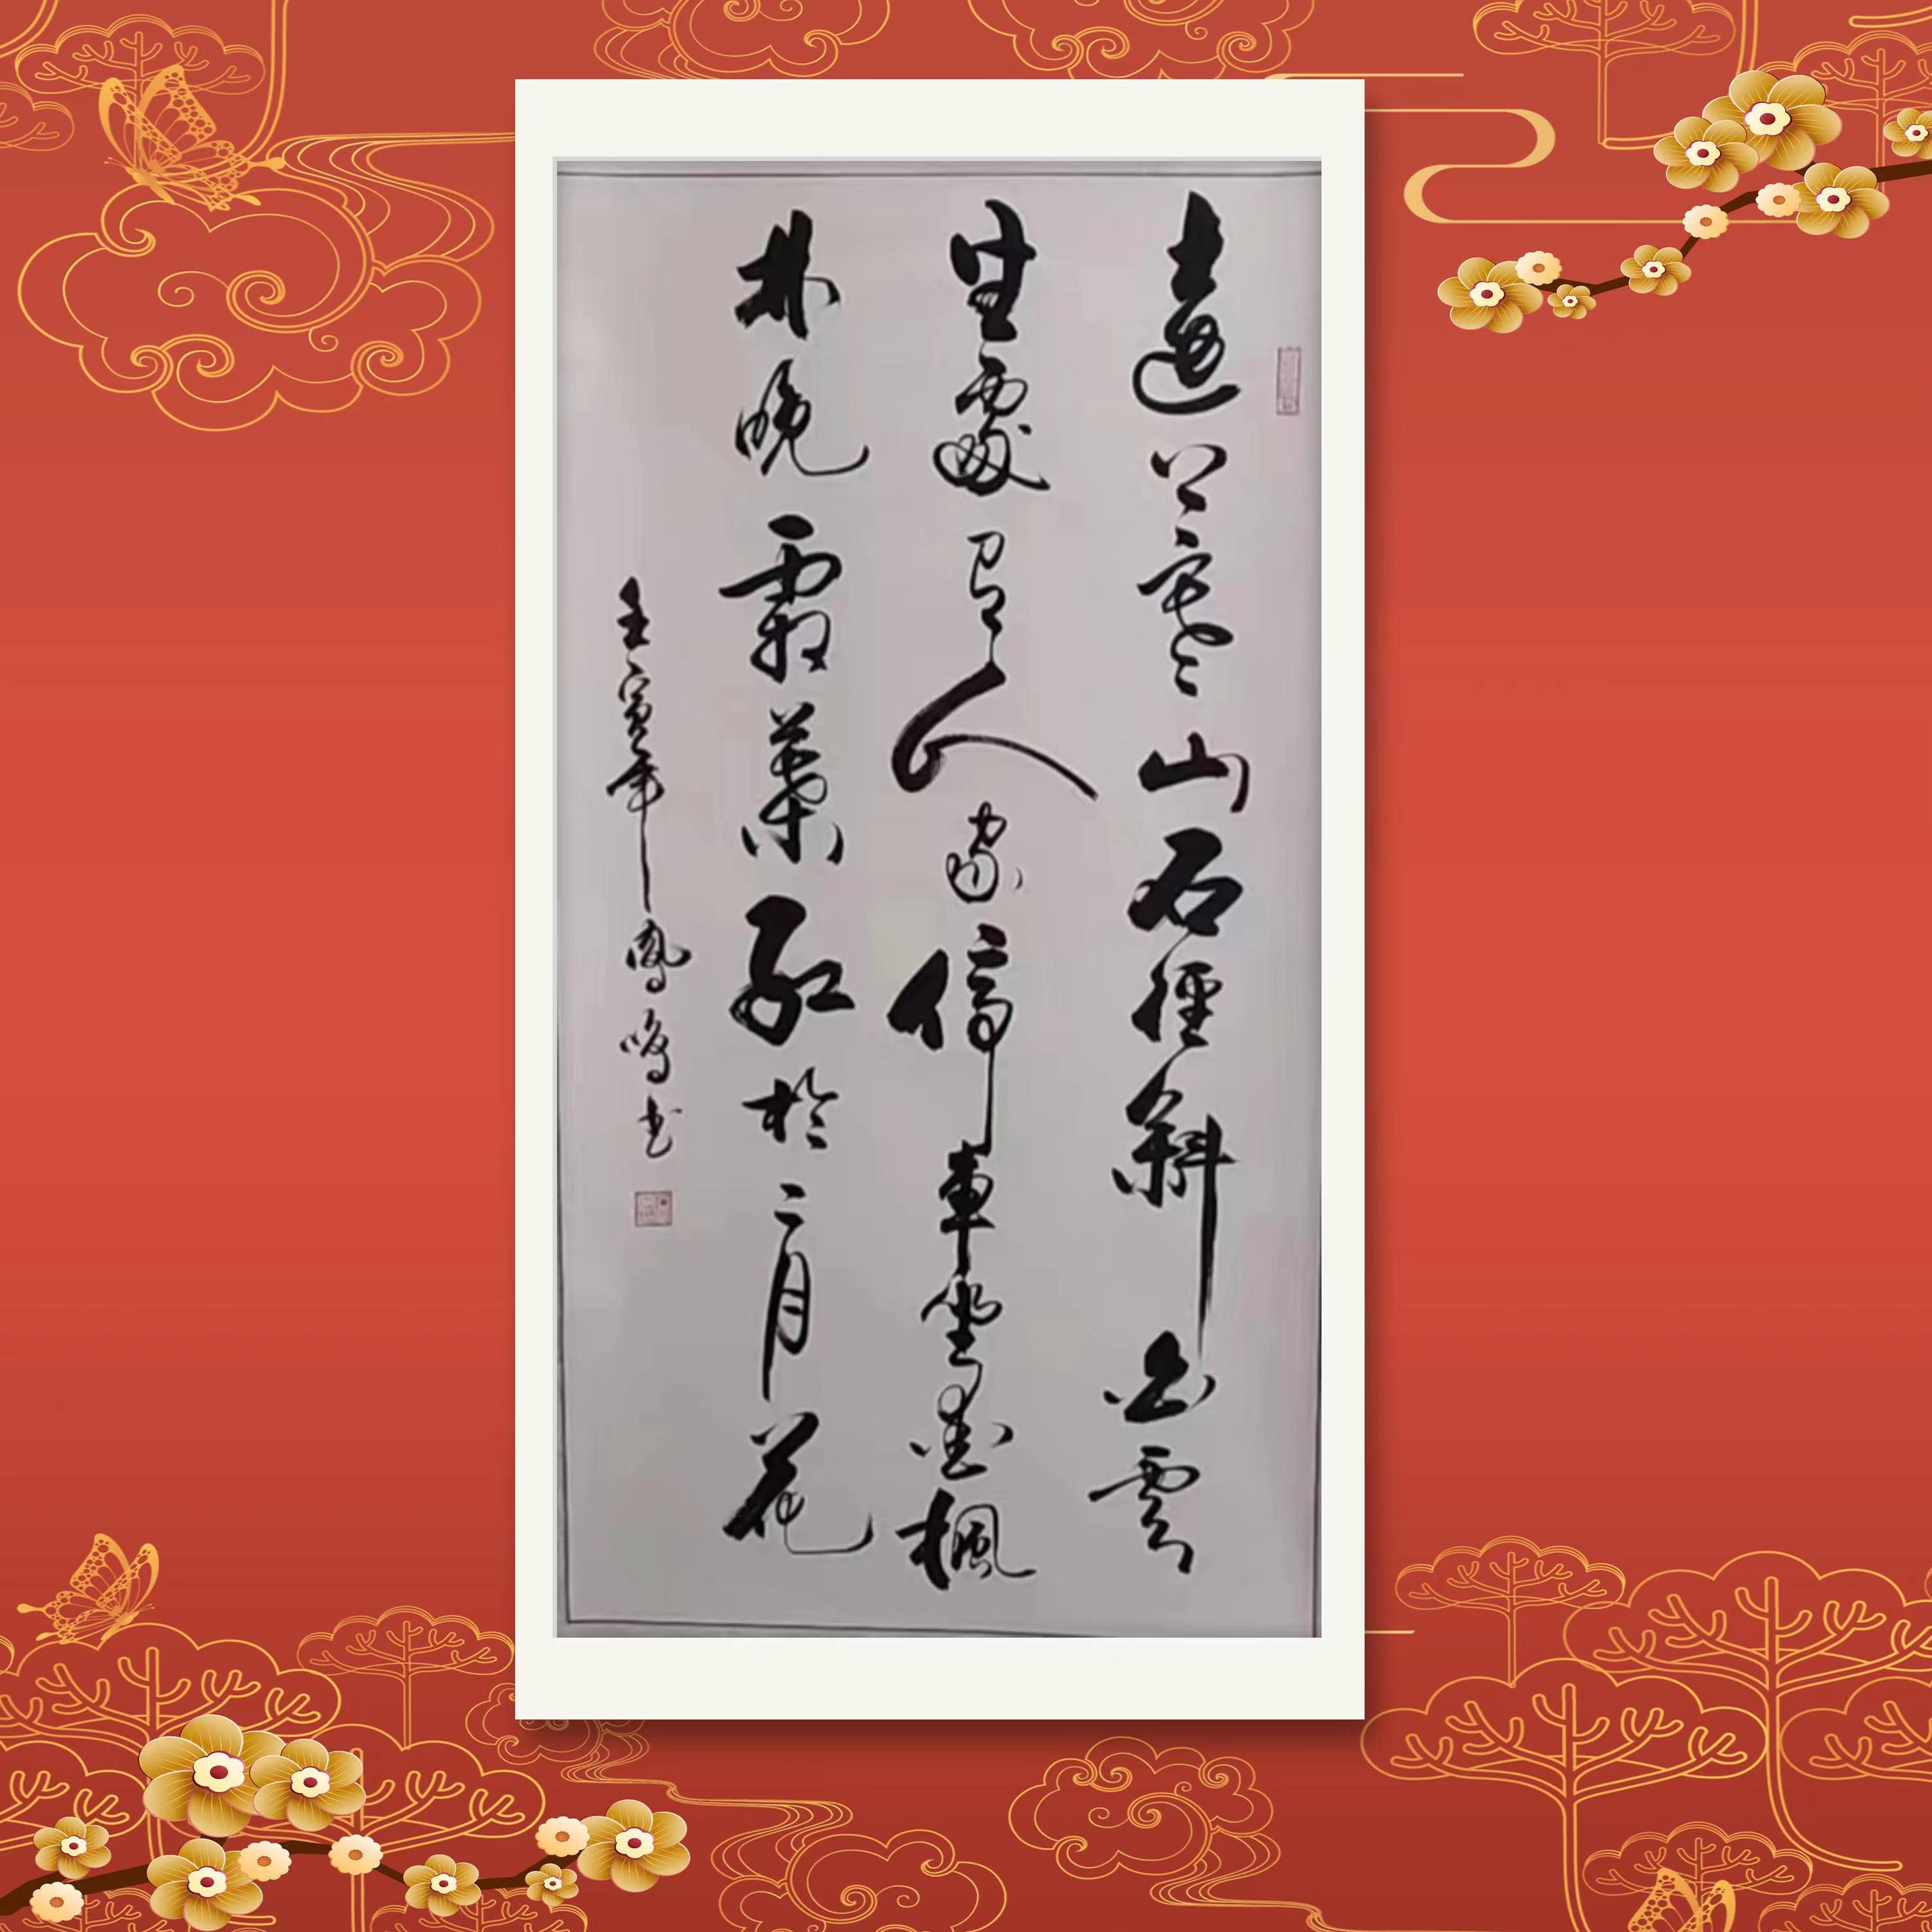 遠上寒山石徑斜白雲
生處有人家停車坐愛楓
林晚霜葉紅於二月花
壬寅年鳳鳴书